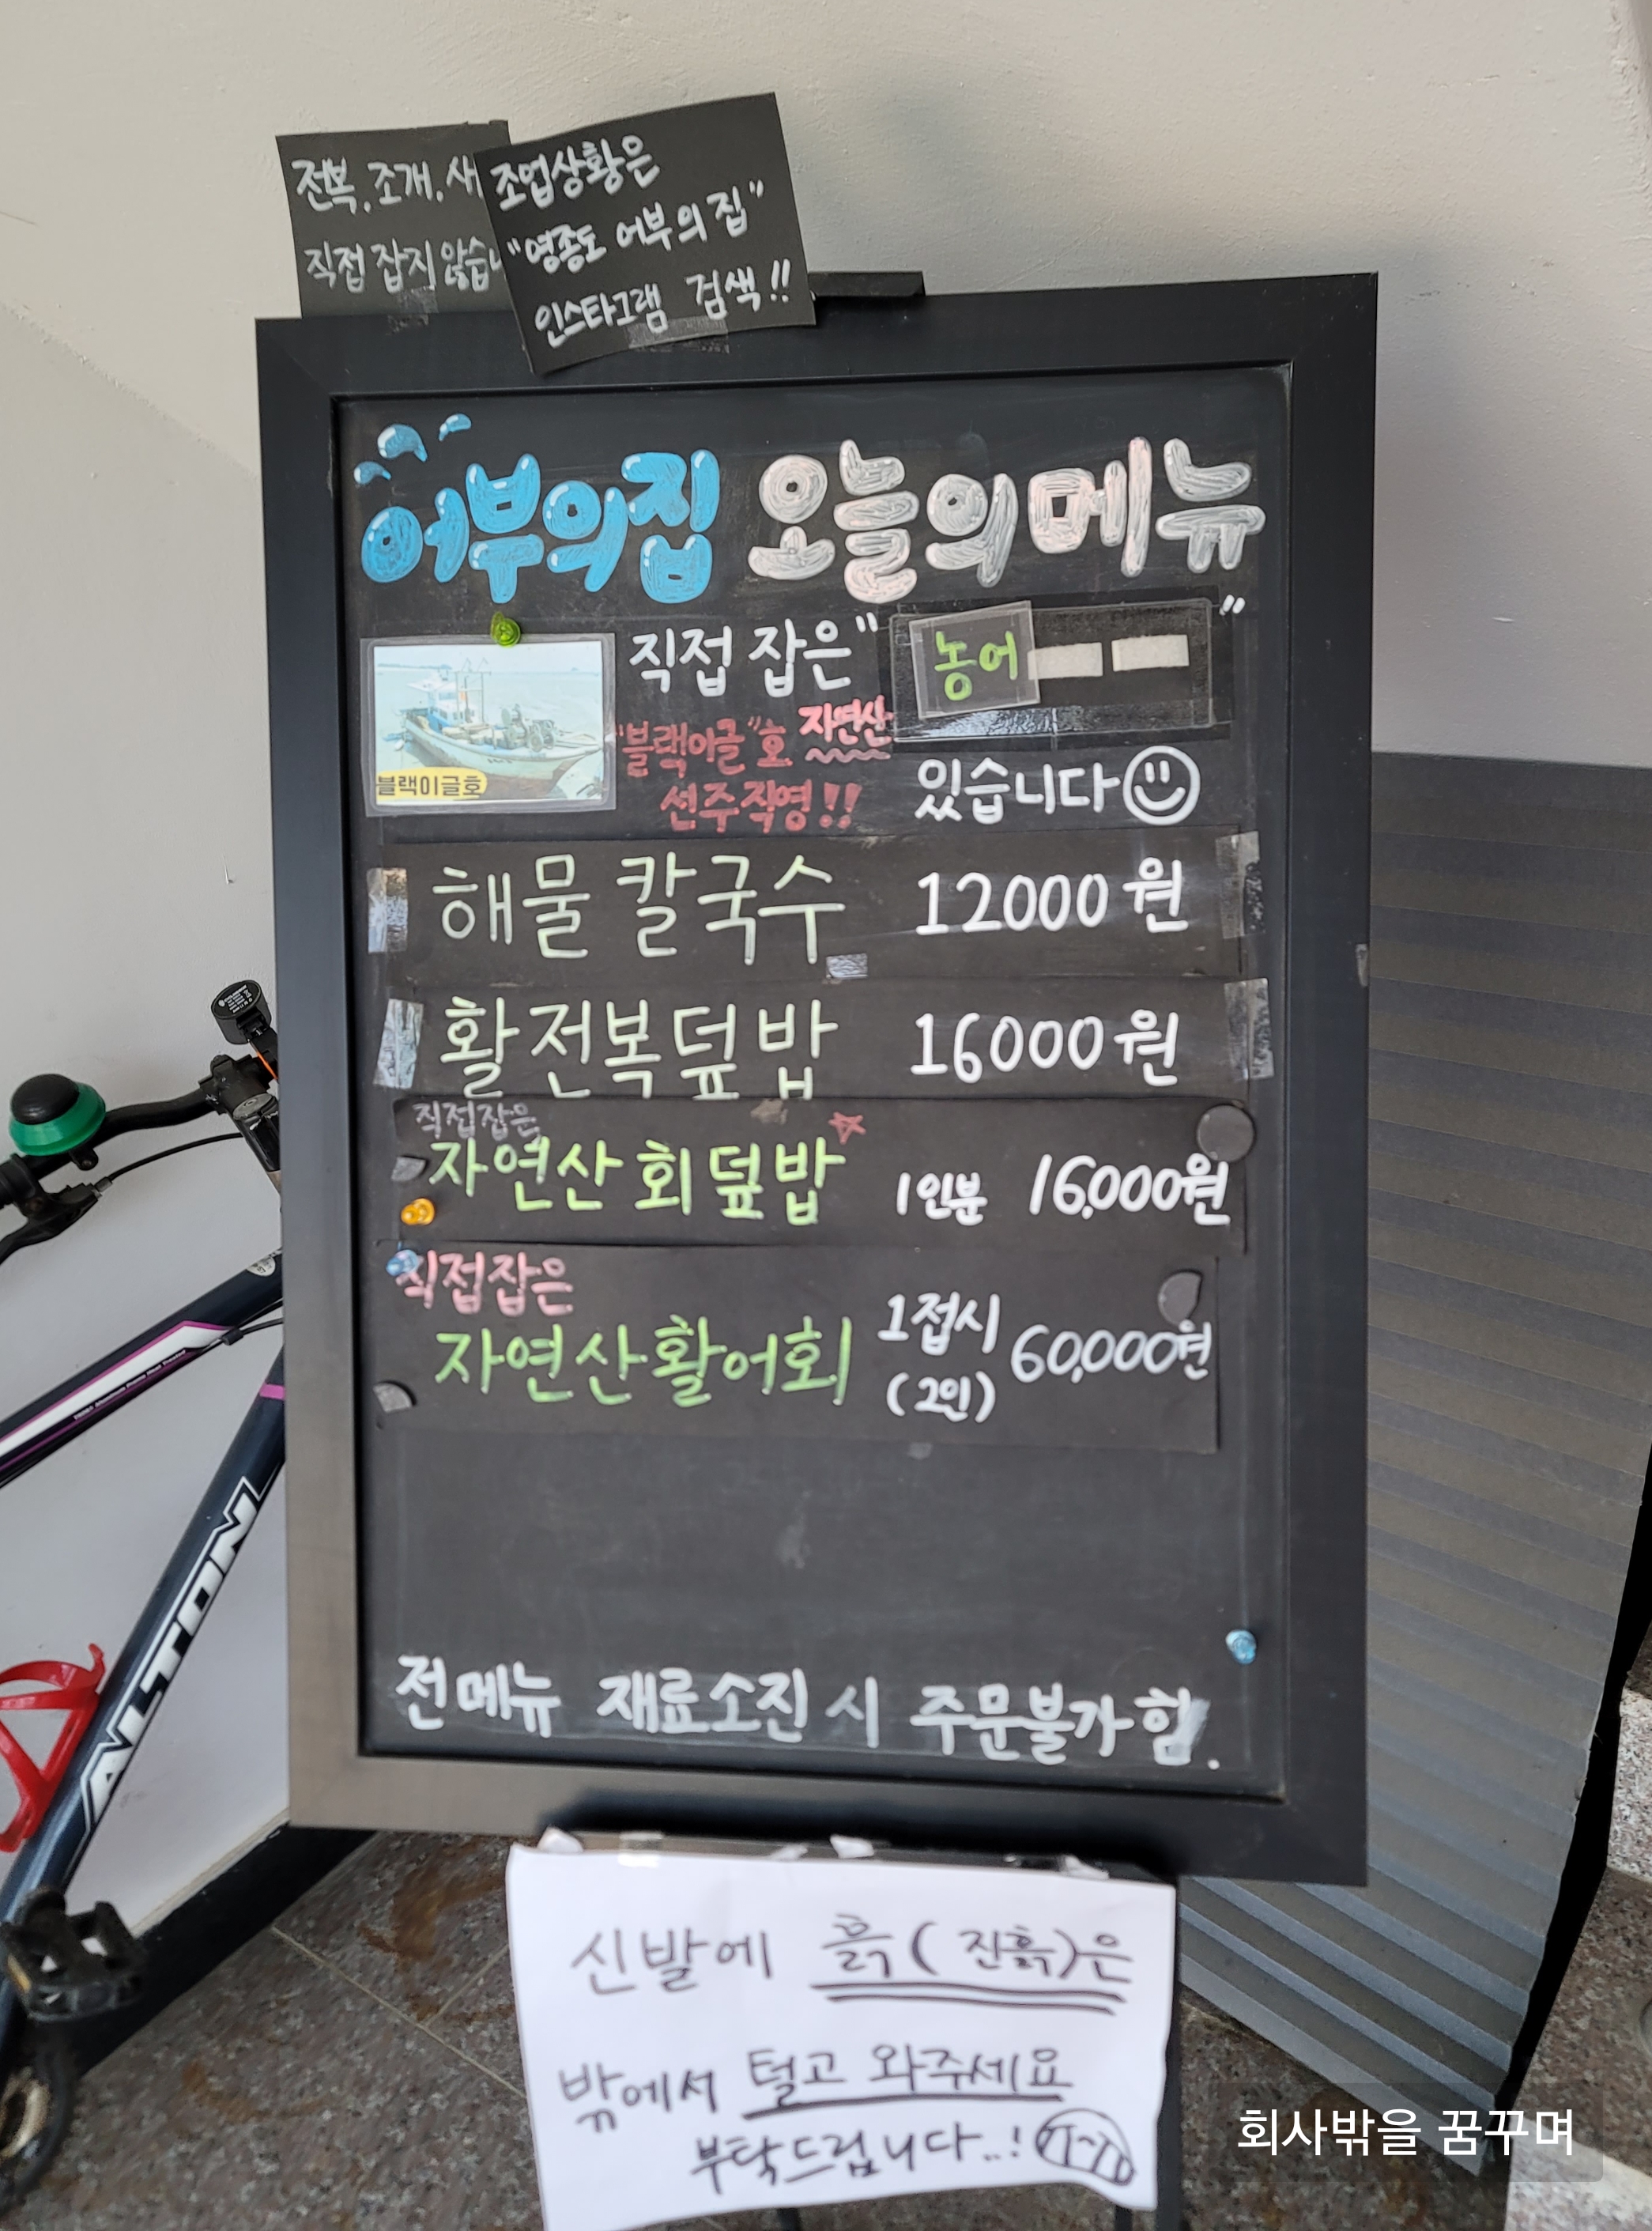 전복, 조개, 새
직접 잡지 않습
조업상황은
"영종도 어부의 집"
인스타그램 검색!!
어부의집 오늘의메뉴
직접 잡은 " 농어 "
블랙이글호
"블랙이글"호 자연산
선주직영!!
있습니다
해물 칼국수 12000원
활전복덮밥 16000원
직접잡은
자연산회덮밥 1인분 16,000원
직접잡은
자연산활어회 1접시 (2인) 60,000원
전메뉴 재료소진시 주문불가함.
신발에 흙(진흙)은
밖에서 털고 와주세요
부탁드립니다..! ㅠㅠ
ALTON
회사밖을 꿈꾸며